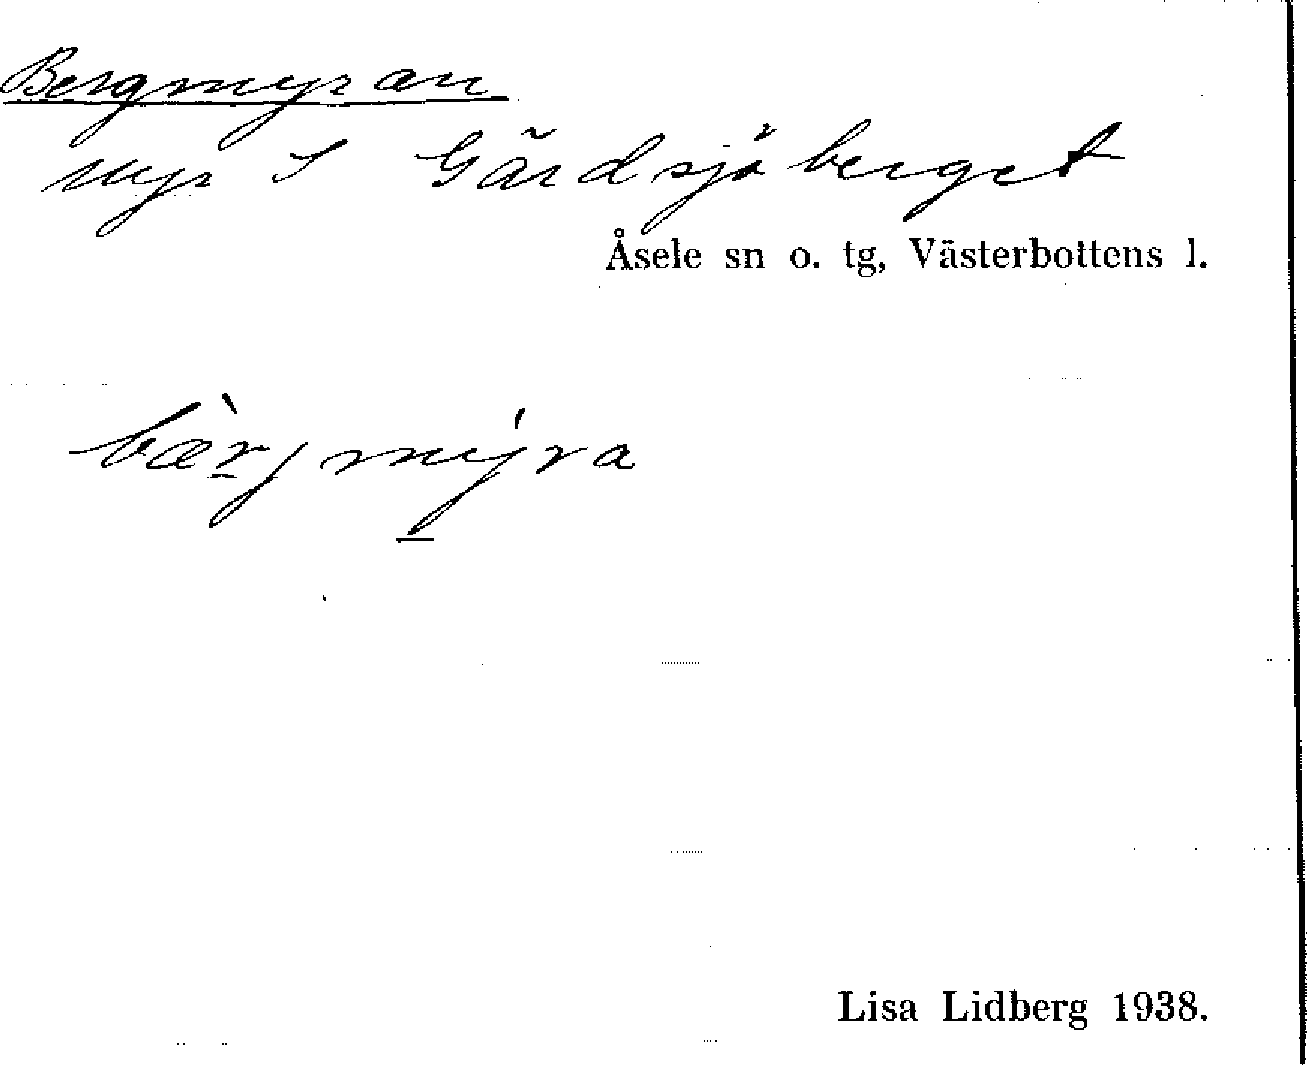 Bergmyran
myr S Gårdsjöberget
Åsele sn o. tg, Västerbottens l.
bæ̀rjmýra
Lisa Lidberg 1938.